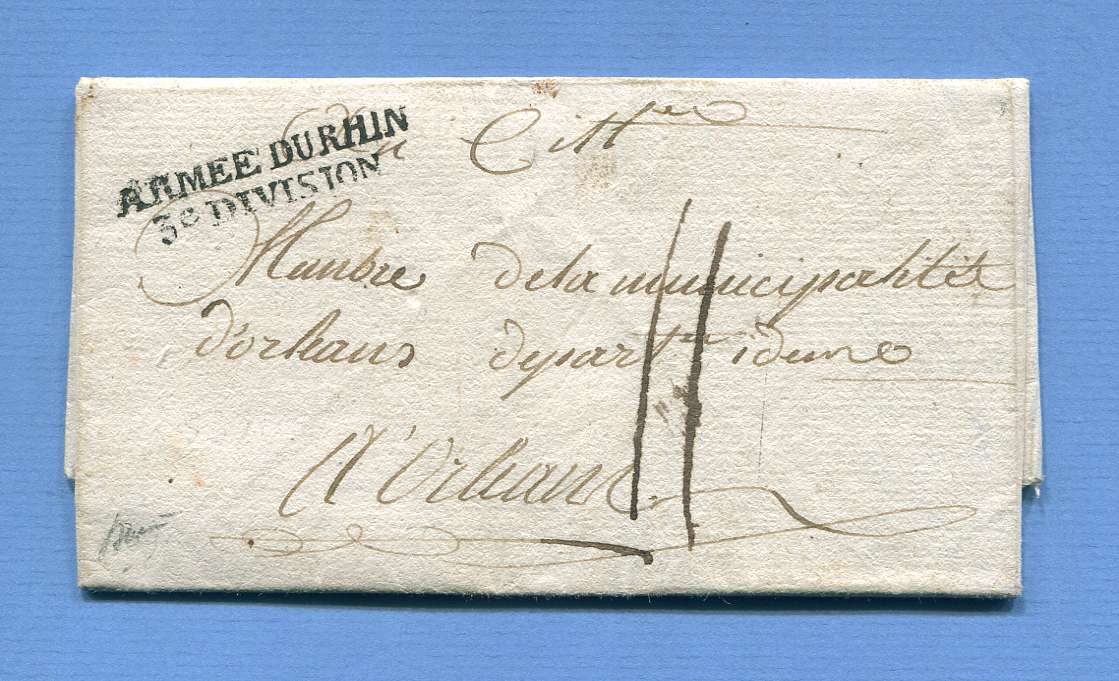 ARMEE DU RHIN
3e DIVISION
Au Citt
Manbre de la municipalitet
d'orleans depart idem
A Orleans
11